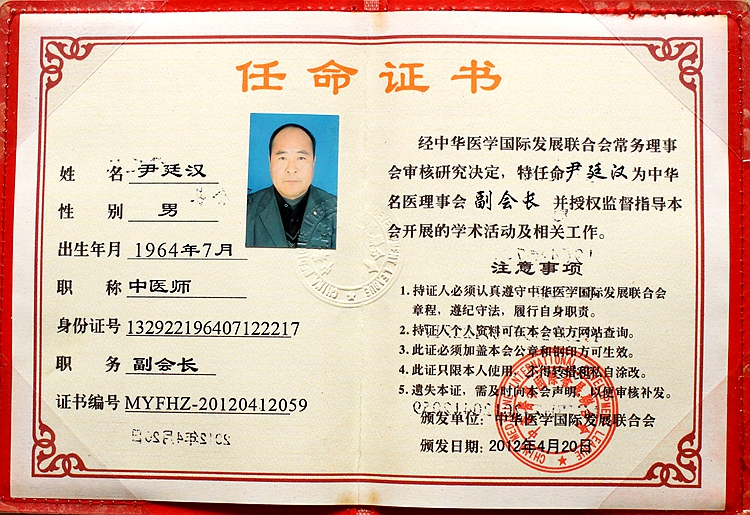 任命证书
姓 名 尹廷汉
性 别 男
出生年月 1964年7月
职 称 中医师
身份证号 132922196407122217
职 务 副会长
证书编号 MYFHZ-20120412059
经中华医学国际发展联合会常务理事
会审核研究决定，特任命尹廷汉为中华
名医理事会 副会长 并授权监督指导本
会开展的学术活动及相关工作。
注意事项
1. 持证人必须认真遵守中华医学国际发展联合会
章程，遵纪守法，履行自身职责。
2. 持证人个人资料可在本会官方网站查询。
3. 此证必须加盖本会公章和钢印方可生效。
4. 此证只限本人使用，不得转借和私自涂改。
5. 遗失本证，需及时向本会声明，以便审核补发。
颁发单位：中华医学国际发展联合会
颁发日期：2012年4月20日